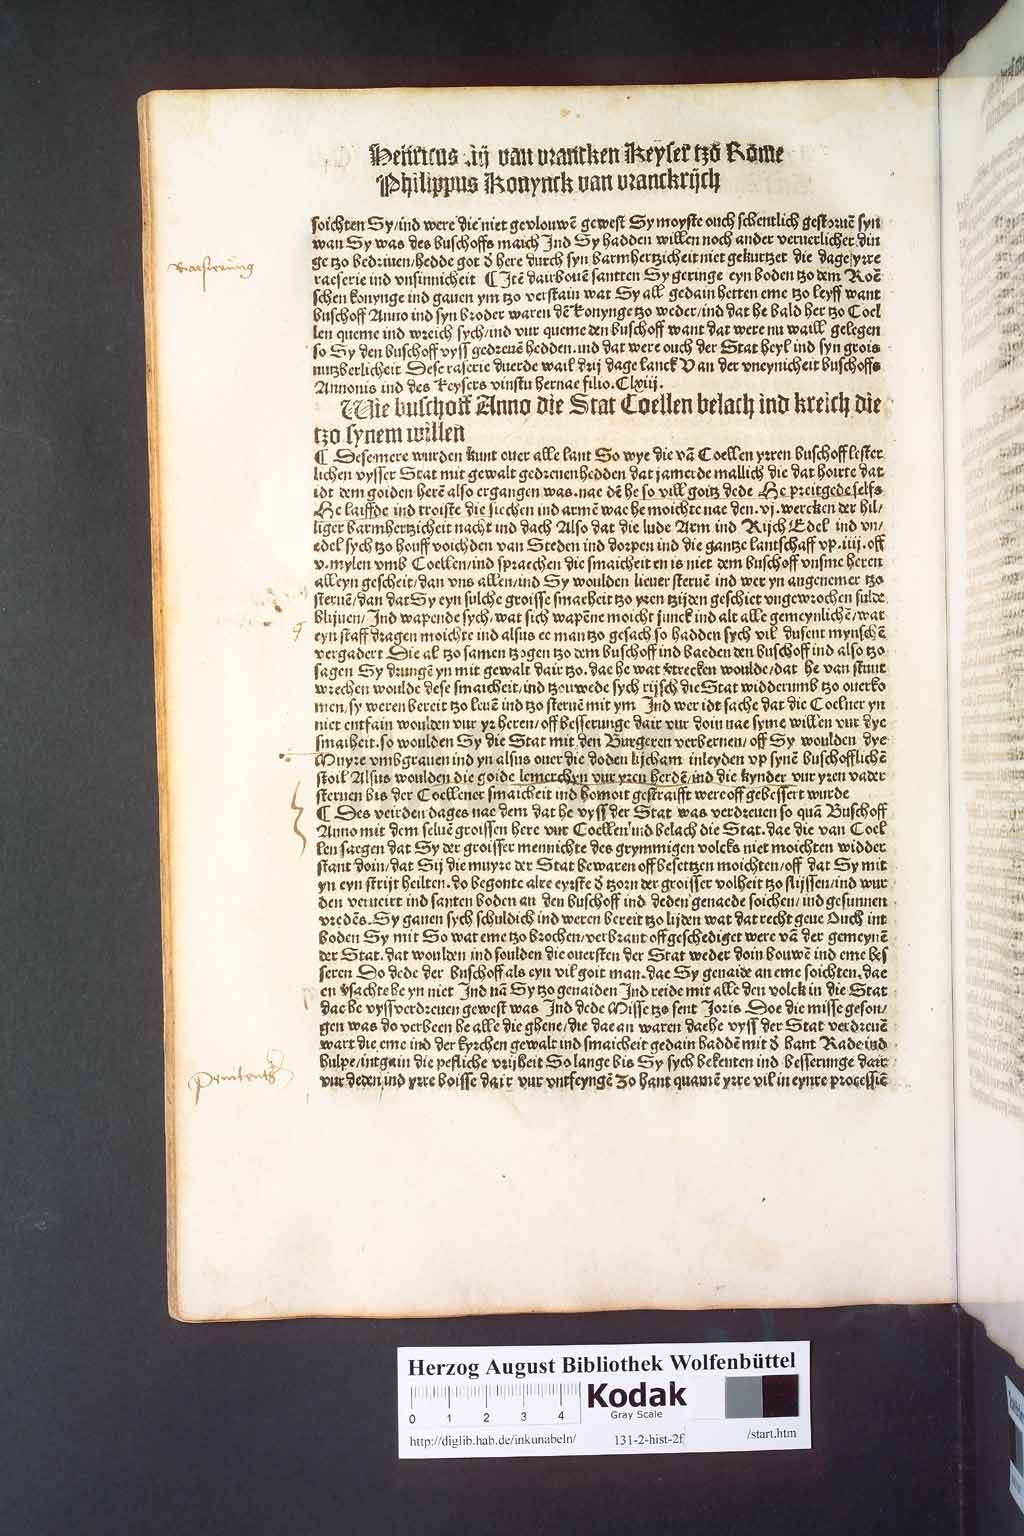 Henricus .iij van vrancken Keyser tzo Rome
Philippus Konynck van vranckrijch
soichten Sy/ind were die niet gevlouwē gewest Sy moyste ouch schentlich gestoruē syn
wan Sy was des buschoffs maich Ind Sy hadden willen noch ander veruerlicher din
ge tzo bedriuen/hedde got d here durch syn barmhertzicheit niet gekurtzet die dage yrre
raeserie ind vnsinnicheit ¶ Itē dairbouē santten Sy geringe eyn boden tzo dem Roē
schen konynge ind gauen ym tzo verstain wat Sy all gedain hetten eme tzo leyff want
buschoff Anno ind syn broder waren dē konynge tzo weder/ind dat he bald her tzo Coel
len queme ind wreich sych/ind vur queme den buschoff want dat were nu waill gelegen
so Sy den buschoff vyss gedreuē hedden.ind dat were ouch der Stat heyl ind syn grois
nutzberlicheit Dese raserie duerde wail drij dage lanck Van der vneynicheit buschoffs
Annonis ind des Keysers vinstu hernae filio.Clxiij.
Wie buschoff Anno die Stat Coellen belach ind kreich die
tzo synem willen
¶ Dese mere wurden kunt ouer alle lant So wye die vā Coellen yren buschoff lester
lichen vysser Stat mit gewalt gedreuen hedden dat jamerde mallich die dat hoirte dat
idt dem goiden herē also ergangen was.nae dē he so vill goitz dede He preitgede selfs
He laiffde ind troiste die siechen ind armē wae he moichte nae den.vj.wercken der hil/
liger barmhertzicheit nacht ind dach Also dat die lude Arm ind Rijch Edel ind vn/
edel sych tzo houff voichden van Steden ind dorpen ind die gantze lantschaff vp.iiij.off
v.mylen vmb Coellen/ind spraechen die smaicheit en is niet dem buschoff vnsme heren
alleyn gescheit/dan vns allen/ind Sy woulden lieuer steruē ind wer yn angenemer tzo
steruē/dan dat Sy eyn sulche groisse smaeheit tzo yren tzijden geschiet vngewrochen sulde
blijuen/ Ind wapende sych/wat sich wapēne moicht junck ind alt alle gemeynlichē/wat
eyn staff dragen moichte ind alsus ee man tzo gesach so hadden sych vil dusent mynschē
vergadert Die al tzo samen tzogen tzo dem buschoff ind baeden den buschoff ind also tzo
sagen Sy drungē yn mit gewalt dair tzo.dae he wat vtrecken woulde/dat he van stunt
wrechen woulde dese smaicheit/ind tzouwede sych rijsch die Stat widderumb tzo ouerko
men/sy weren bereit tzo leuē ind tzo steruē mit ym Ind wer idt sache dat die Coelner yn
niet entfain woulden vur yr heren/off besserunge dair vur doin nae syme willen vur dye
smaiheit.so woulden Sy die Stat mit den Burgeren verbernen/ off Sy woulden dye
Muyre vmbgrauen ind yn alsus ouer die doden lijcham inleyden vp synē buschofflichē
stoil Alsus woulden die goide lemerchyn vur yren herdē/ind die kynder vur yren vader
steruen bis der Coellener smaicheit ind homoit gestraifft were off gebessert wurde
¶ Des veirden dages nae dem dat he vyss der Stat was verdreuen so quā Buschoff
Anno mit dem seluē groissen here vur Coellen ind belach die Stat.dae die van Coel
len saegen dat Sy der groisser mennichte des grymmigen volcks niet moichten widder
stant doin/dat Sij die muyre der Stat bewaren off besettzen moichten/off dat Sy mit
yn eyn strijt heilten.do begonte alre eyrste d tzorn der groisser volheit tzo slijssen/ind wur
den verueirt ind santen boden an den buschoff ind deden genaede soichen/ind gesunnen
vredēs.Sy gauen sych schuldich ind weren bereit tzo lijden wat dat recht geue Ouch int
boden Sy mit So wat eme tzo brochen/verbrant off geschediget were vā der gemeynē
der Stat.dat woulden ind soulden die ouersten der Stat weder doin bouwē ind eme bes
seren Do dede der buschoff als eyn vil goit man.dae Sy genaide an eme soichten.dae
en vsachte he yn niet Ind nā Sy tzo genaiden Ind reide mit alle den volck in die Stat
dae he vyss verdreuen gewest was Ind dede Misse tzo sent Joris. Doe die misse geson/
gen was do verbeen he alle die ghene/die dae an waren dae he vyss der Stat verdreuē
wart die eme ind der kyrchen gewalt ind smaicheit gedain haddē mit d hant Rade ind
hulpe/intgain die pefliche vrijheit So lange bis Sy sych bekenten ind besserunge dair
vur deden ind yrre boisse dair vur vntfeyngē Zo hant quamē yrre vil in eynre processiē
Penitentz
Herzog August Bibliothek Wolfenbüttel
0 1 2 3 4
Kodak
Gray Scale
http://diglib.hab.de/inkunabeln/ 131-2-hist-2f /start.htm